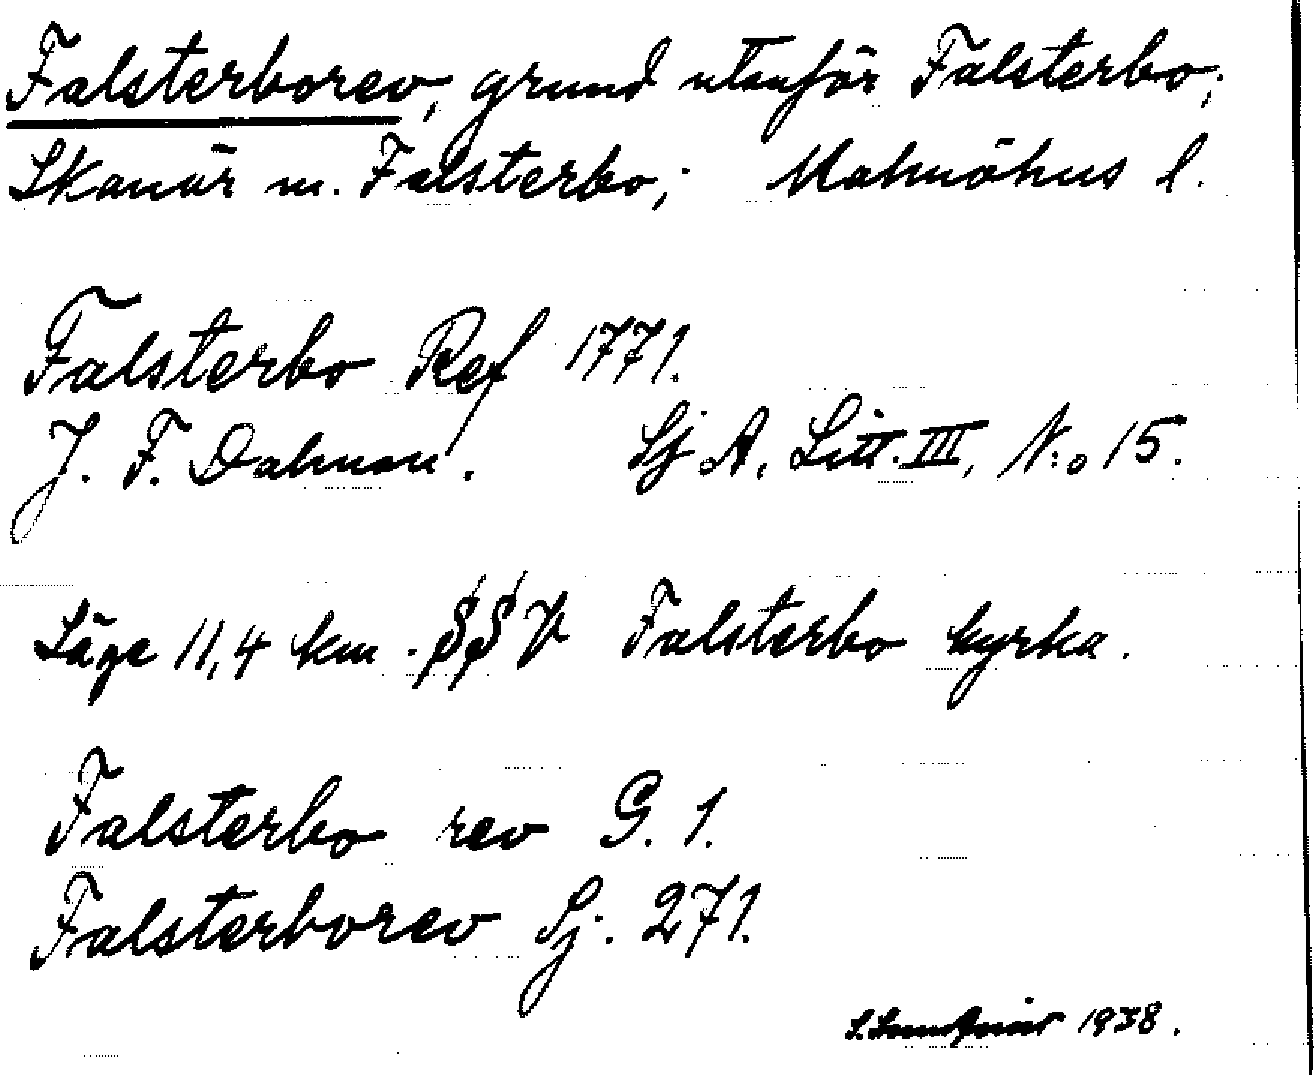 Falsterborev, grund utanför Falsterbo;
Skanör m. Falsterbo; Malmöhus l.
Falsterbo Ref 1771.
J. F. Dalman. Sj A, Litt. III, N:o 15.
Läge 11,4 km. SSV Falsterbo kyrka.
Falsterbo rev G. 1.
Falsterborev Sj. 271.
1938.